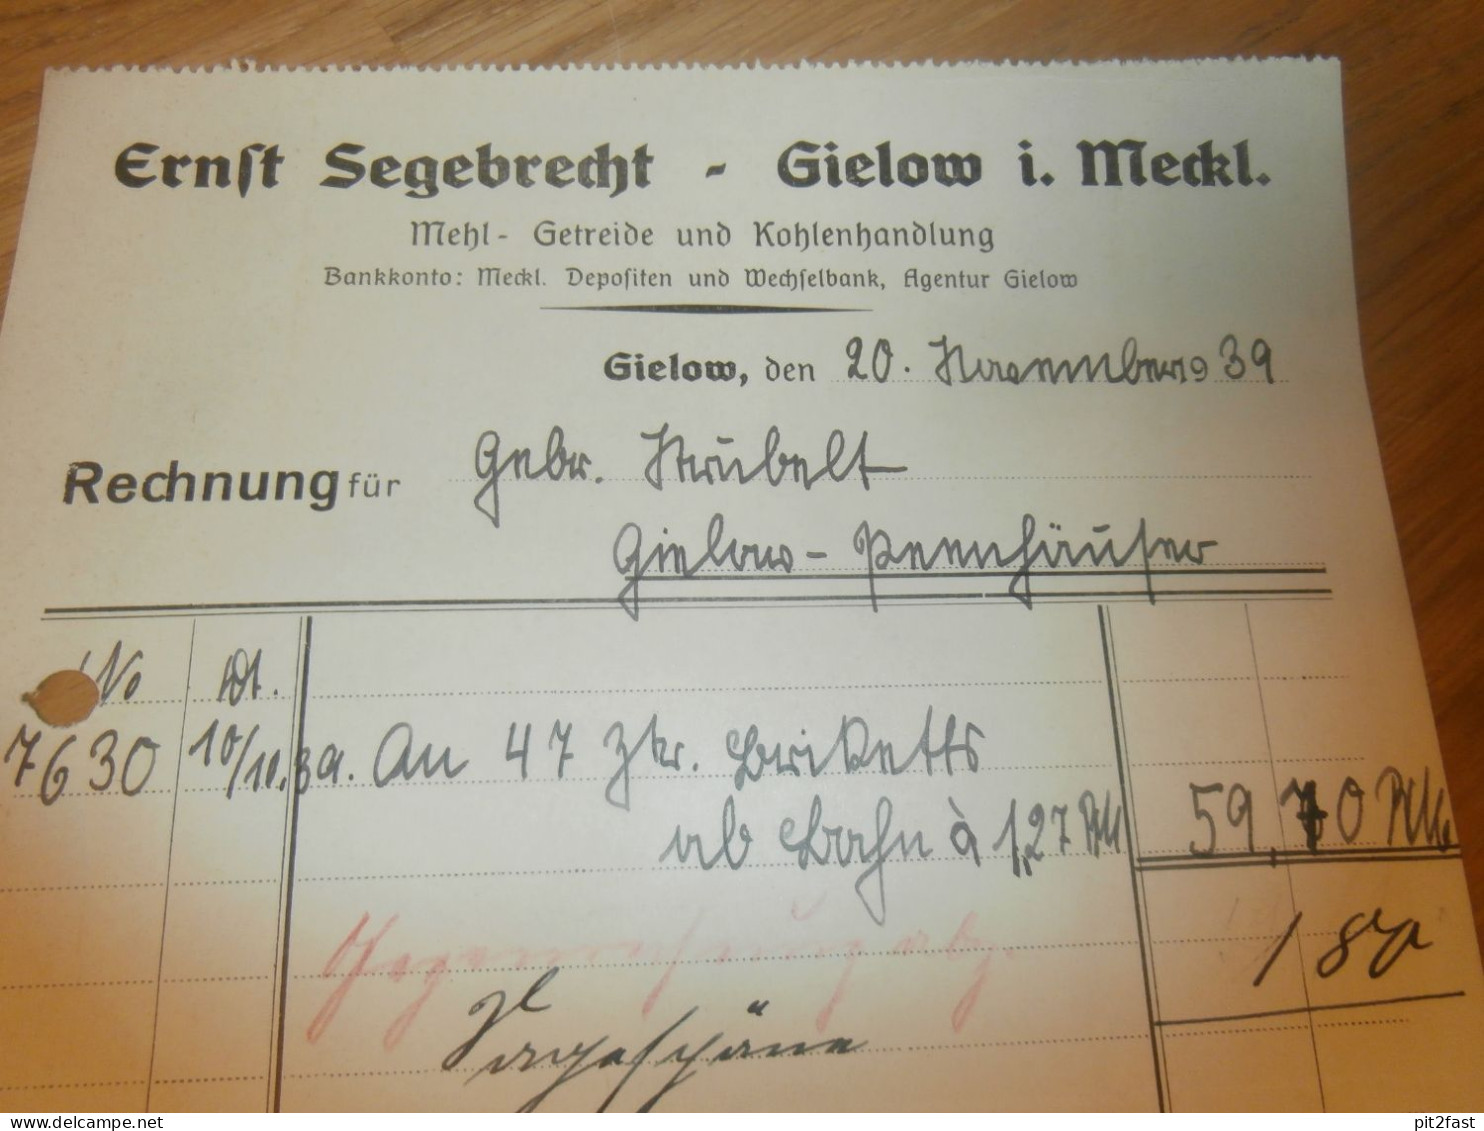 Ernst Segebrecht - Gielow i. Meckl.
Mehl- Getreide und Kohlenhandlung
Bankkonto: Meckl. Depositen und Wechselbank, Agentur Gielow
Gielow, den 20. November 1939
Rechnung für Gebr.
Gielow - Peenhäuser
No
7630 10/10.39. An 47 Ztr. Briketts
ab Bahn à 1,27 RM 59,70 RM.
Gegenrechnung abz.
1 80
pit2fast